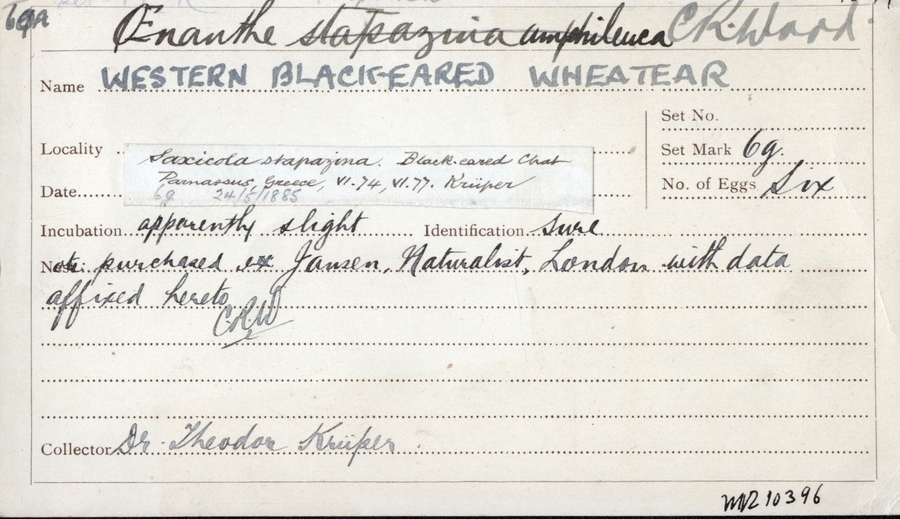 6g/A
Œnanthe stapazina amphileuca C.R. Wood
Name WESTERN BLACK-EARED WHEATEAR
Set No.
Locality
Set Mark 6g.
Saxicola stapazina. Black-eared Chat
Parnassus, Greece, VI-74, VI.77. Krüper
6g 24/5/1885
Date
No. of Eggs Six
Incubation apparently slight Identification sure
purchased ex Jansen, Naturalist, London with data
affixed hereto
C.R.W
Collector Dr. Theodor Krüper.
210396